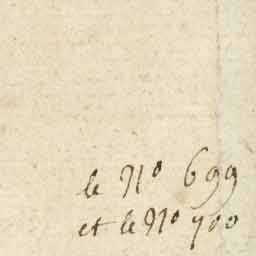 le No 699
et le No 700